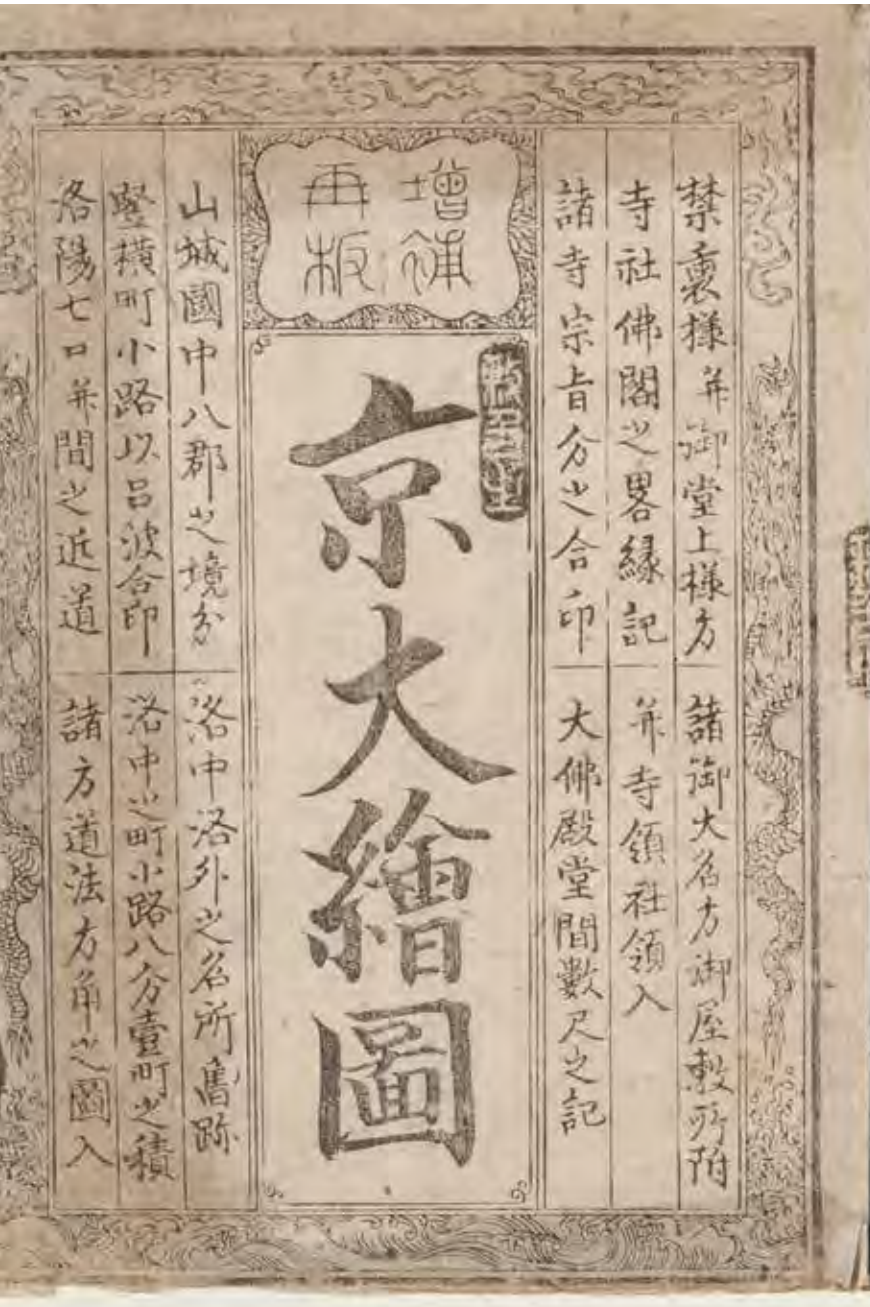 増補
再板
京大繪圖
禁裏様并御堂上様方
諸御大名方御屋敷所附
寺社佛閣之畧縁記
并寺領社領入
諸寺宗旨分之合印
大佛殿堂間數尺之記
山城國中八郡之境分
洛中洛外之名所舊跡
竪横町小路以呂波合印
洛中之町小路八分壹町之積
洛陽七口并間之近道
諸方道法方角之圖入